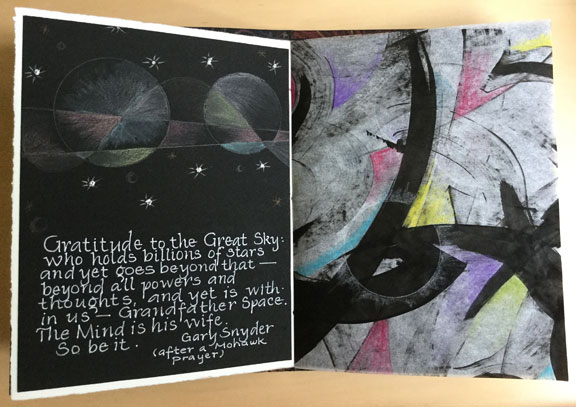 Gratitude to the Great Sky:
who holds billions of stars
and yet goes beyond that —
beyond all powers and
thoughts, and yet is with-
in us — Grandfather Space.
The Mind is his Wife.
So be it.
Gary Snyder
(after a Mohawk
Prayer)